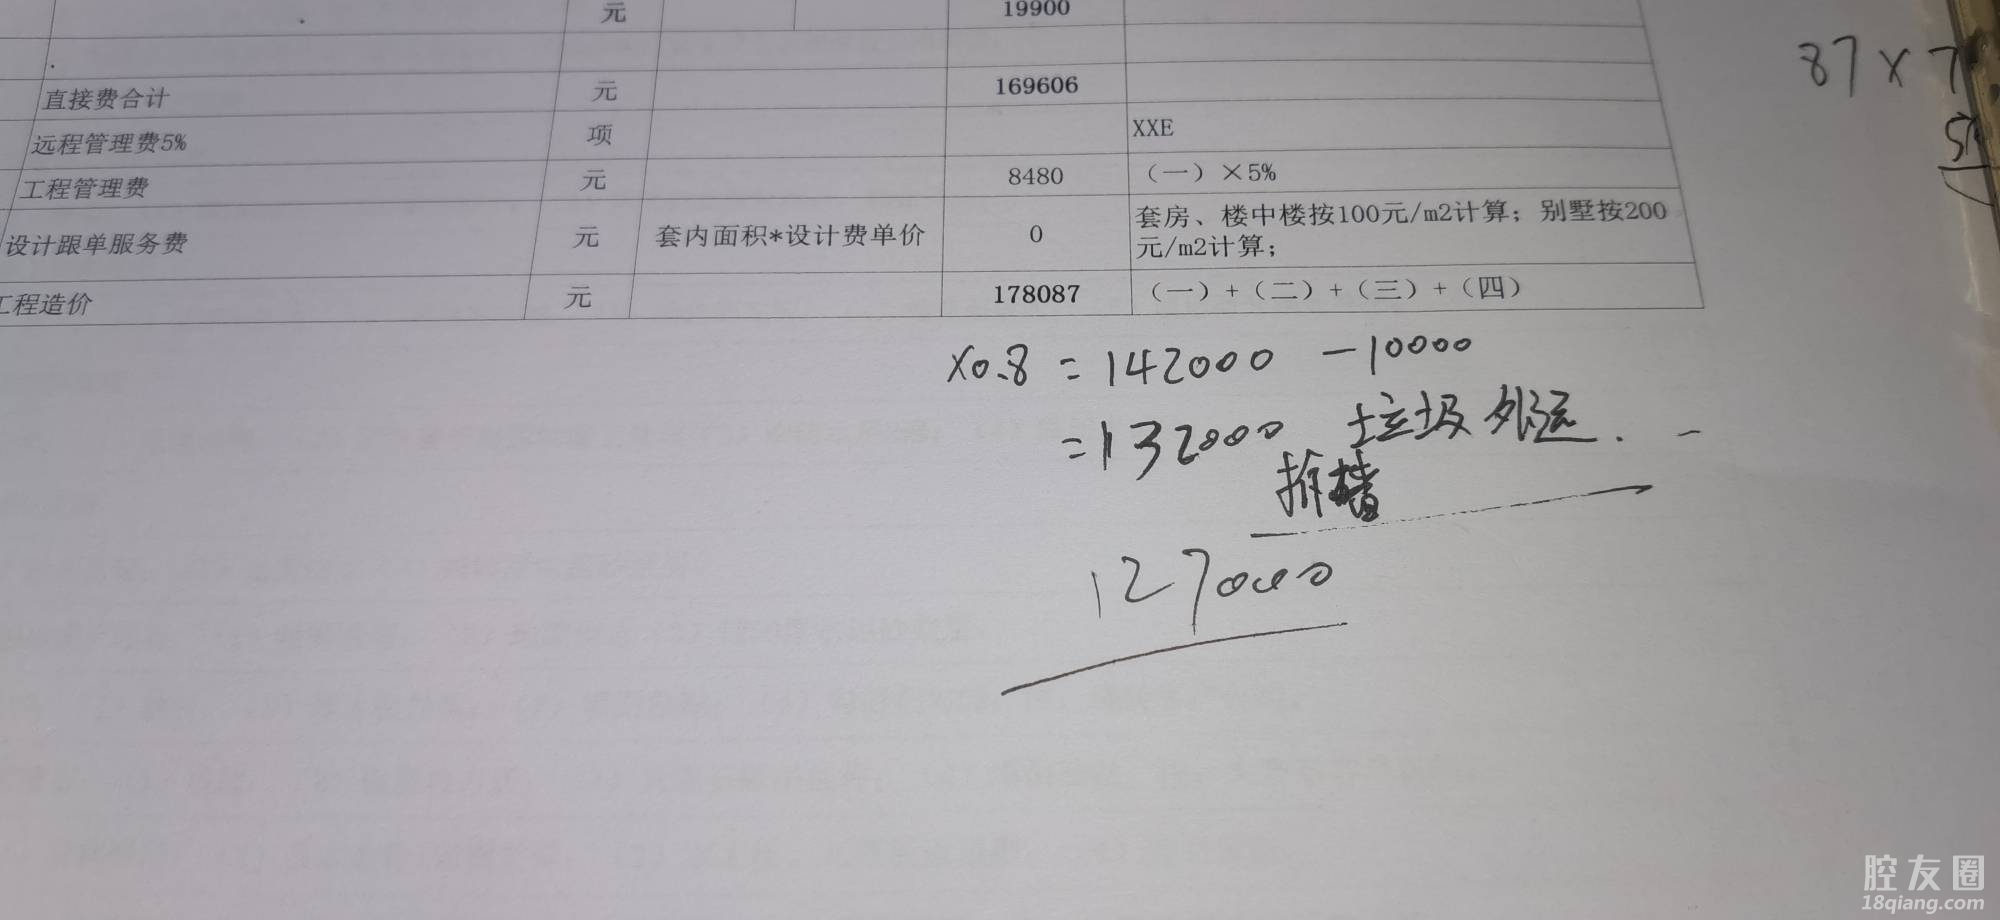 元 19900
.
直接费合计 元 169606
远程管理费5% 项 XXE
工程管理费 元 8480 （一）×5%
设计跟单服务费 元 套内面积*设计费单价 0 套房、楼中楼按100元/m2计算；别墅按200
元/m2计算；
工程造价 元 178087 （一）+（二）+（三）+（四）
87×7
×0.8=142000 -10000
=132000 垃圾外运. -
拆墙
127000
腔友圈
18qiang.com